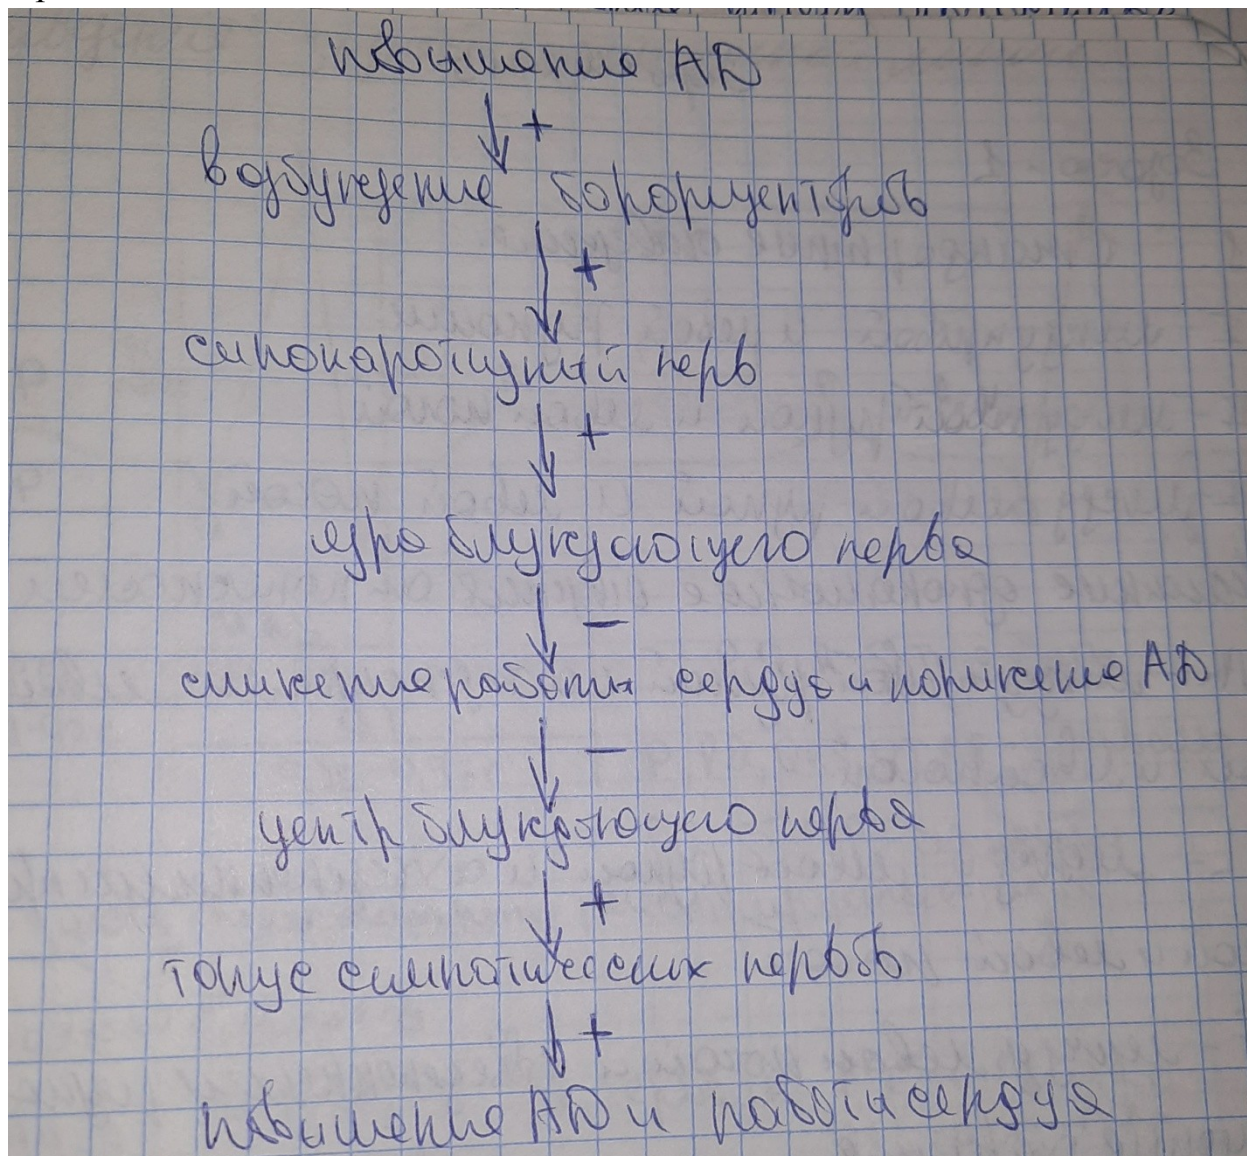 повышение АД
+
возбуждение барорецепторов
+
синокаротидный нерв
+
ядро блуждающего нерва
−
снижение работы сердца и понижение АД
−
центр блуждающего нерва
+
тонус симпатических нервов
+
повышение АД и работы сердца